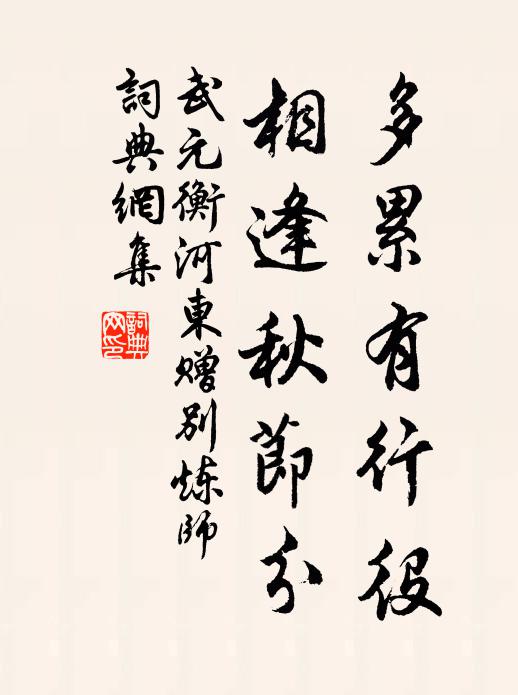 多累有行役
相逢秋節分
武元衡河東贈别炼師
詞典網集
詞典網印